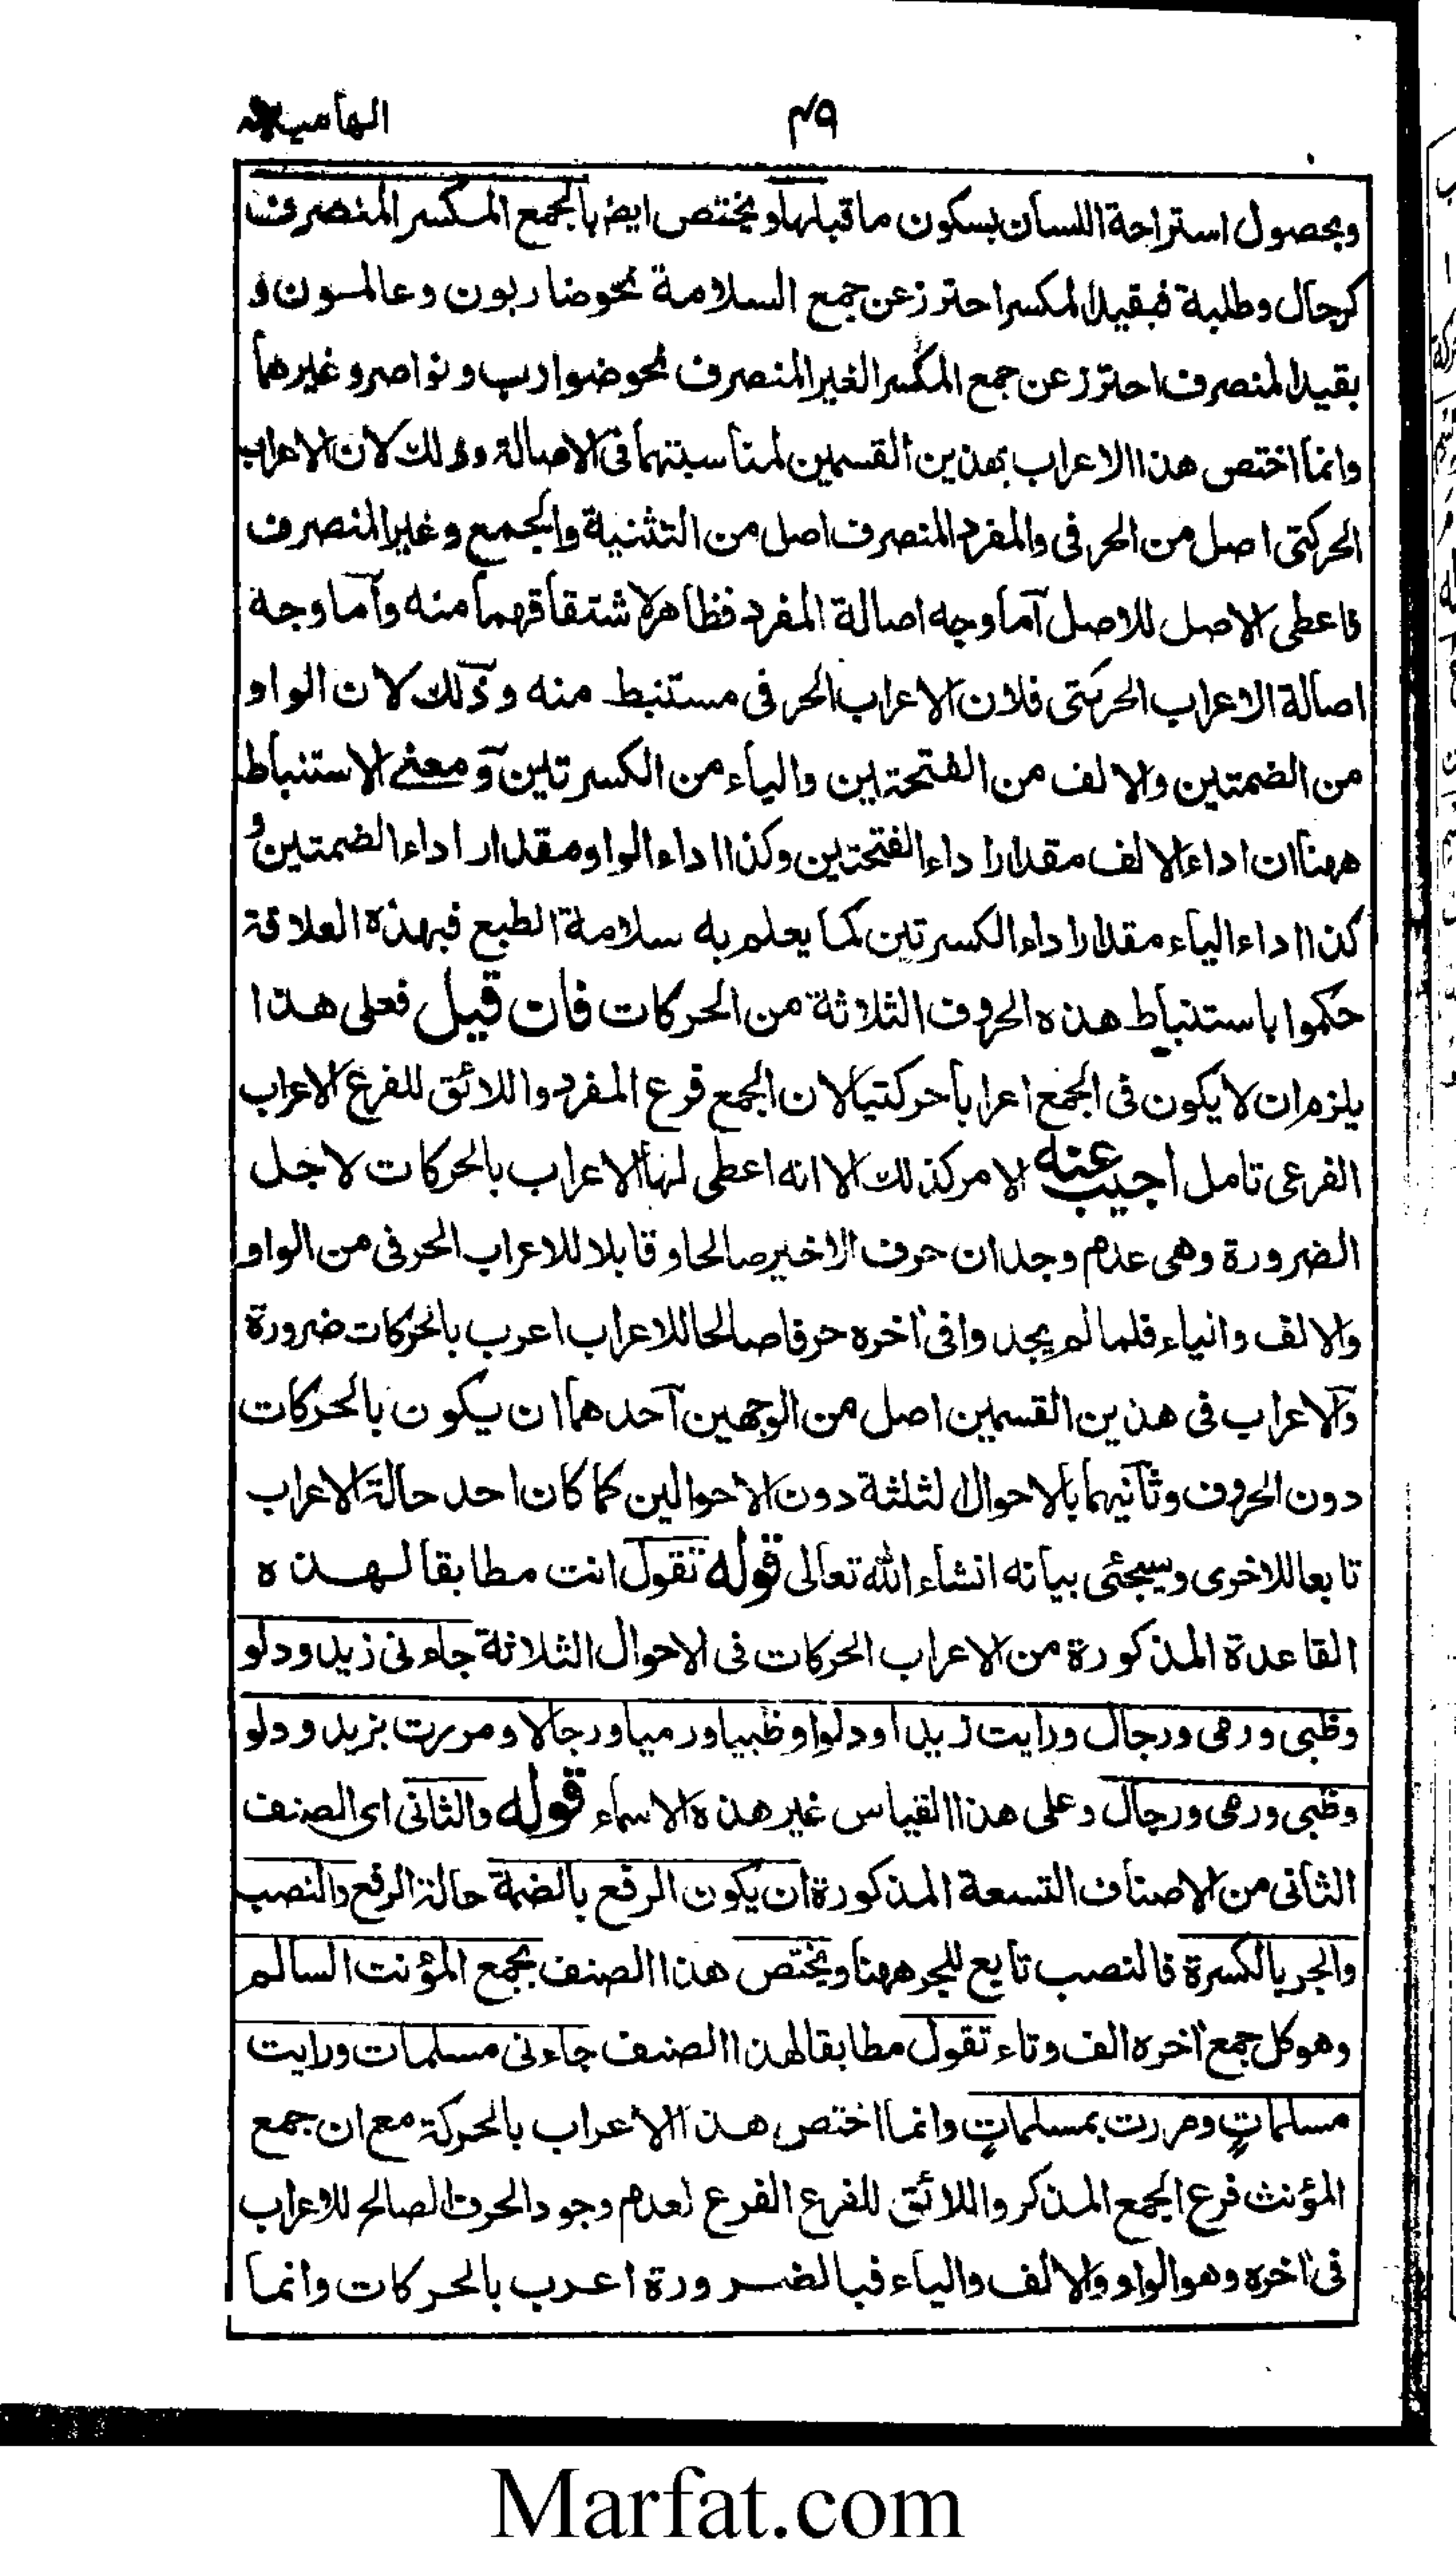 ۴۹
وبحصول استراحة اللسان بسكون ماقبلها ويختص ايض بالجمع المكسر المنصرف
كرجال وطلبة فبقيد المكسر احترز عن جمع السلامة نحو ضاربون وعالمون و
بقيد المنصرف احترز عن جمع المكسر الغير المنصرف نحو ضوارب ونواصر وغيرهما
وانما اختص هذا الاعراب بهذين القسمين لمناسبتهما فى الاصالة وذلك لان الاعراب
الحركتى اصل من الحرفى والمفرد المنصرف اصل من التثنية والجمع وغير المنصرف
فاعطى الاصل للاصل آما وجه اصالة المفرد فظاهر لاشتقاقهما منه وآما وجه
اصالة الاعراب الحركتى فلان الاعراب الحرفى مستنبط منه وذلك لان الواو
من الضمتين والالف من الفتحتين والياء من الكسرتين ومعنى الاستنباط
ههنا ان اداء الالف مقدار اداء الفتحتين وكذا اداء الواو مقدار اداء الضمتين و
كذا اداء الياء مقدار اداء الكسرتين كما يعلم به سلامة الطبع فبهذه العلاقة
حكموا باستنباط هذه الحروف الثلاثة من الحركات فان قيل فعلى هذا
يلزم ان لا يكون فى الجمع اعرابا حركتيا لان الجمع فرع المفرد واللائق للفرع الاعراب
الفرعى تامل اجيب عنه الامر كذلك الا انه اعطى لها الاعراب بالحركات لاجل
الضرورة وهى عدم وجدان حرف الاخير صالحا وقابلا للاعراب الحرفى من الواو
والالف والياء فلما لم يجدوا فى آخره حرفا صالحا للاعراب اعرب بالحركات ضرورة
والاعراب فى هذين القسمين اصل من الوجهين آحدهما ان يكون بالحركات
دون الحروف وثانيهما بالاحوال الثلثة دون الاحوالين كما كان احد حالة الاعراب
تابعا للاخرى وسيجئى بيانه انشاء الله تعالى قوله تقول انت مطابقا لهذه
القاعدة المذكورة من الاعراب الحركات فى الاحوال الثلاثة جاءنى زيد ودلو
وظبى ورمى ورجال ورايت زيدا ودلوا وظبيا ورميا ورجالا ومررت بزيد ودلو
وظبى ورمى ورجال وعلى هذا القياس غير هذه الاسماء قوله والثانى اى الصنف
الثانى من الاصناف التسعة المذكورة ان يكون الرفع بالضمة حالة الرفع والنصب
والجر بالكسرة فالنصب تابع للجر ههنا ويختص هذا الصنف بجمع المؤنت السالم
وهو كل جمع آخره الف وتاء تقول مطابقا لهذا الصنف جاءنى مسلمات ورايت
مسلماتٍ ومررت بمسلماتٍ وانما اختص هذا الاعراب بالحركة مع ان جمع
المؤنث فرع الجمع المذكر واللائق للفرع الفرع لعدم وجود الحرف الصالح للاعراب
فى آخره وهو الواو والالف والياء فبالضرورة اعرب بالحركات وانما
Marfat.com